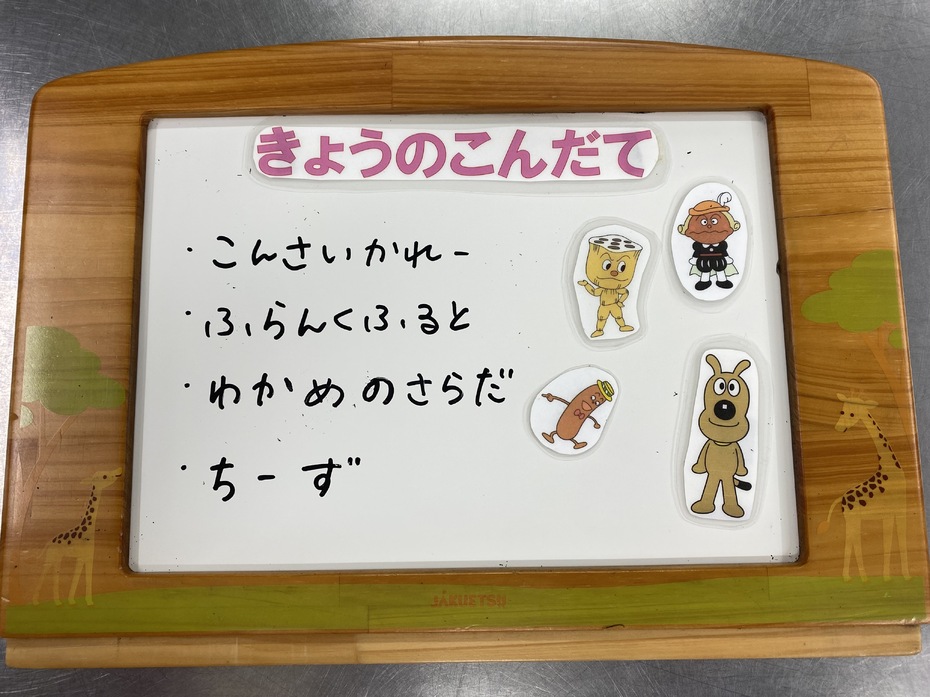 きょうのこんだて
・こんさいかれー
・ふらんくふると
・わかめのさらだ
・ちーず
JAKUETSU